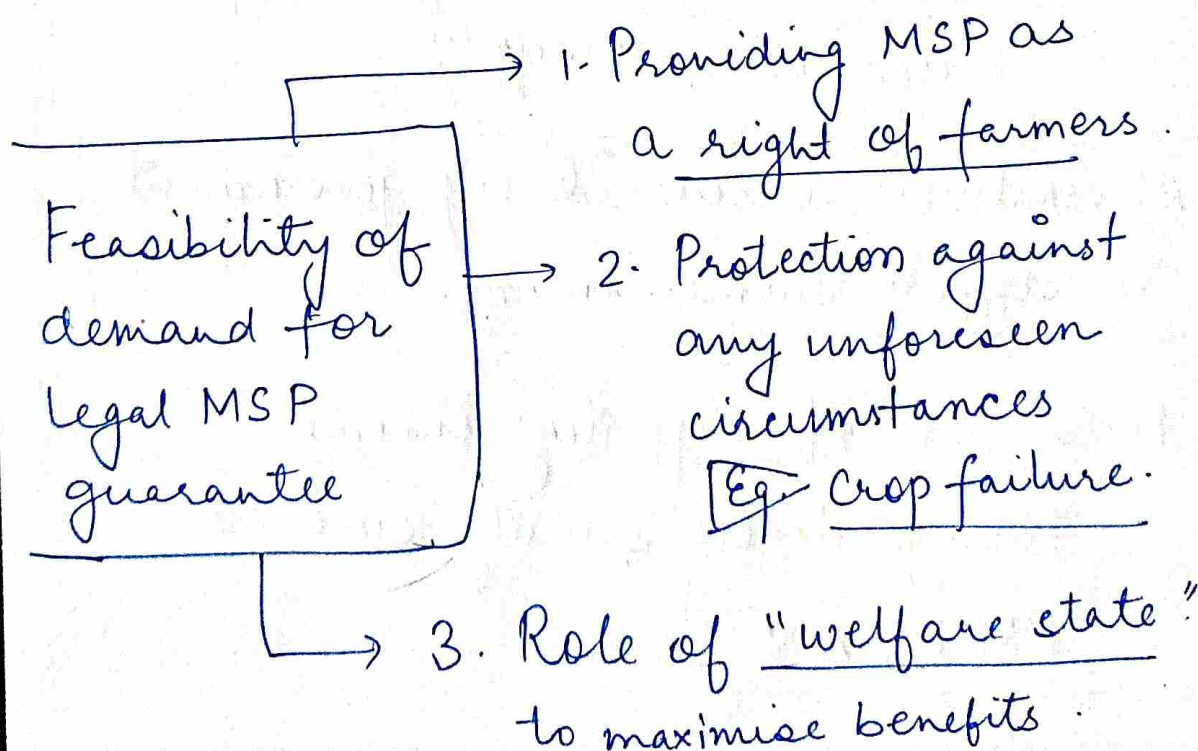 Feasibility of
demand for
legal MSP
guarantee
1. Providing MSP as
a right of farmers.
2. Protection against
any unforeseen
circumstances
Eg. Crop failure.
3. Role of "welfare state"
to maximise benefits.